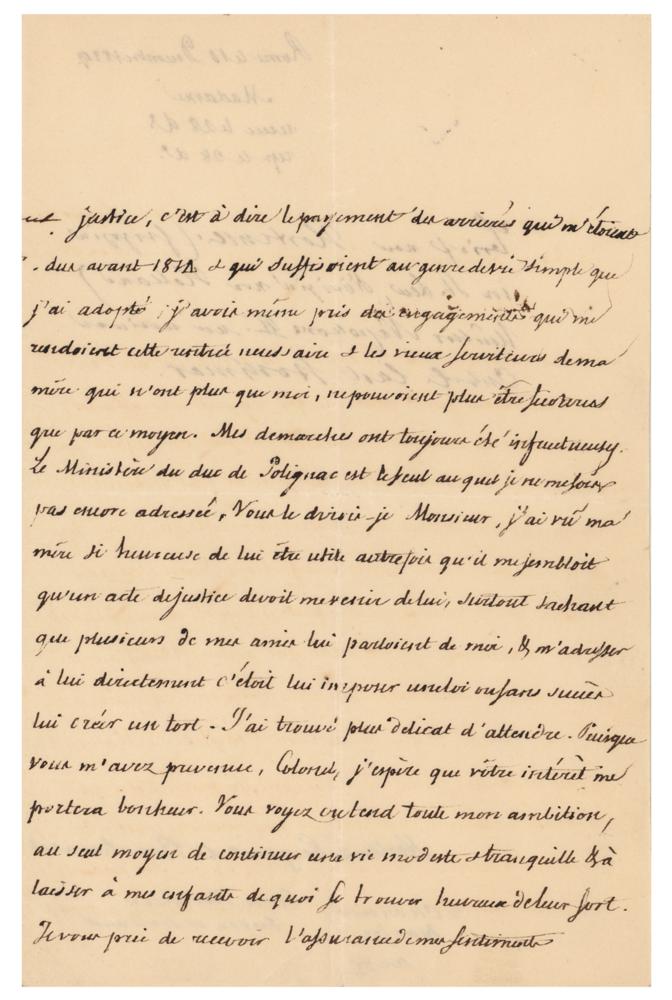 justice, c'est à dire le payement des arrierés qui m'étoient
dus avant 1814 & qui suffisoient au genre de vie simple que
j'ai adopté, j'avois même pris des engagements qui me
rendoient cette rentrée necessaire & les vieux serviteurs de ma
mère qui n'ont plus que moi, ne pouvoient plus être secourus
que par ce moyen. Mes demarches ont toujours été infructueuses.
Le Ministère du duc de Polignac est le seul au quel je ne me sois
pas encore adressée, Vous le dirois-je Monsieur, j'ai vû ma
mère si heureuse de lui être utile autrefois qu'il me sembloit
qu'un acte de justice devoit me venir de lui, surtout sachant
que plusieurs de mes amies lui parloient de moi, & m'adresser
à lui directement c'étoit lui imposer une loi ou sans succès
lui créer un tort. J'ai trouvé plus délicat d'attendre. Puisque
vous m'avez prevenue, Colonel, j'espère que vôtre intérêt me
portera bonheur. Vous voyez qu'tend toute mon ambition,
au seul moyen de continuer une vie modeste & tranquille & à
laisser à mes enfants de quoi se trouver heureux de leur sort.
Je vous prie de recevoir l'assurance de mes sentiments